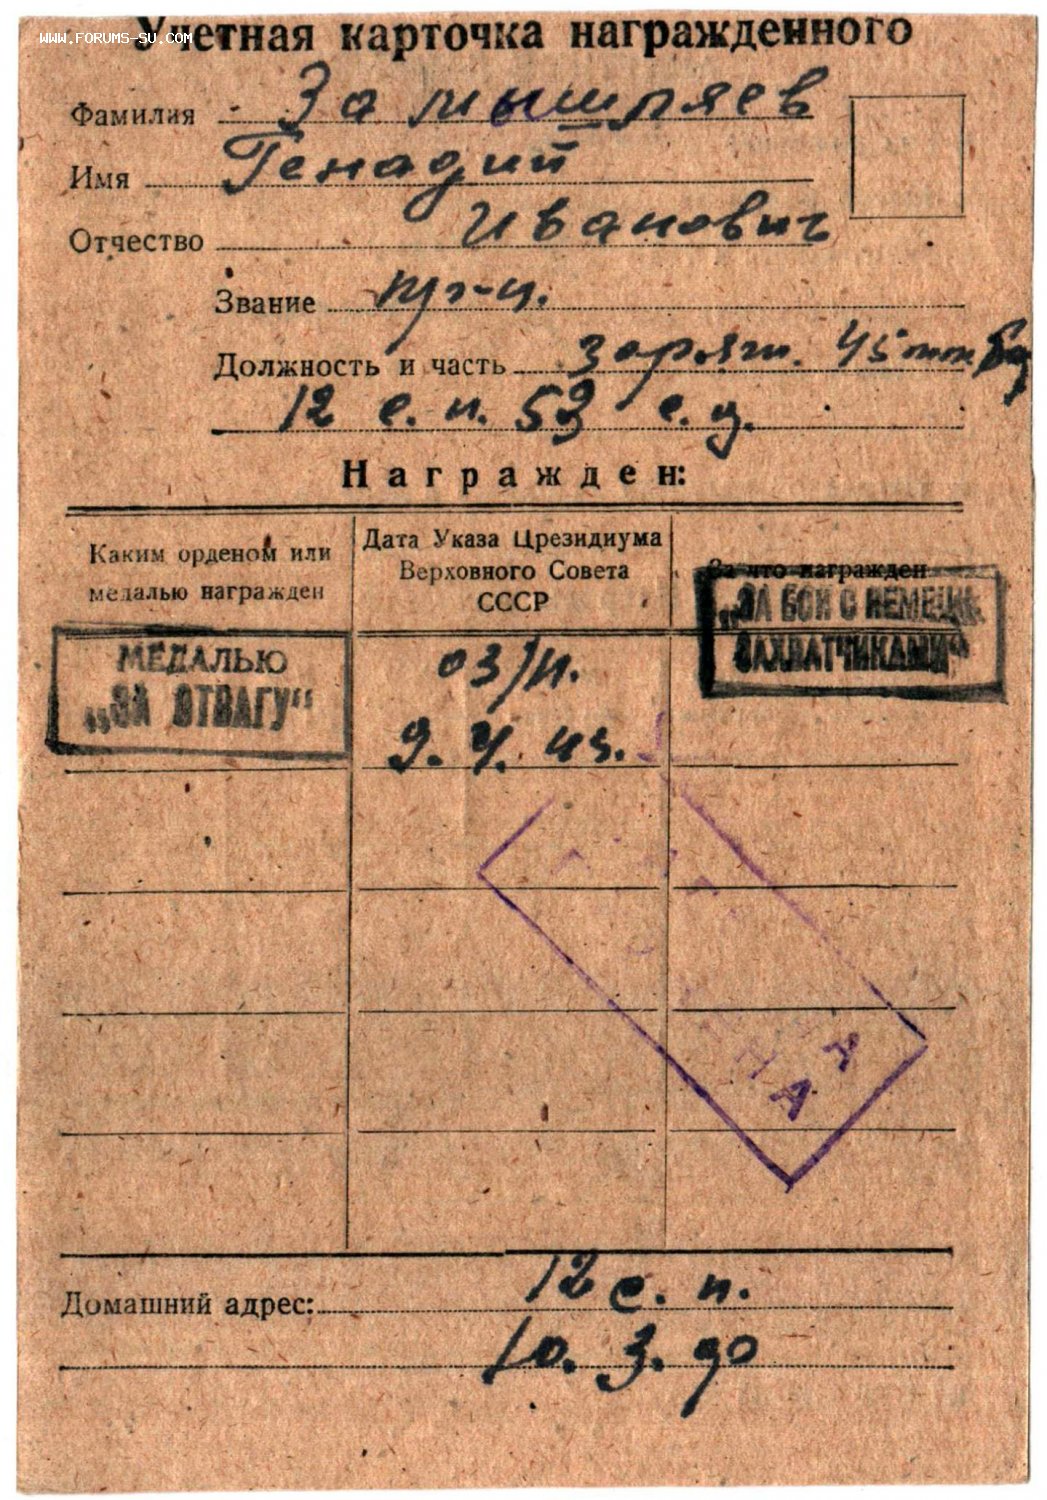 WWW.FORUMS-SU.COM
Учетная карточка награжденного
Фамилия Замышляев
Имя Генадий
Отчество Иванович
Звание
Должность и часть заряж. 45 мм
12 с. п. 53 с. д.
Награжден:
Каким орденом или
медалью награжден
Дата Указа Президиума
Верховного Совета
СССР
За что награжден
МЕДАЛЬЮ
„ЗА ОТВАГУ“
03/н.
„ЗА БОИ С НЕМЕЦК.
ЗАХВАТЧИКАМИ“
Домашний адрес: 12 с. п.